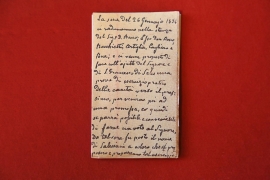 La sera del 26 Gennaio 1854
ci radunammo nella stanza
del Sig. D. Bosco, Esso Don Bosco,
Rocchietti, Artiglia, Cagliero e
Rua; e ci venne proposto di
fare coll'ajuto del Signore e
di S. Francesco di Sales una
prova di esercizio pratico
della carità verso il pros-
simo, per venire poi ad
una promessa, e quindi
se parrà possibile e conveniente
di farne un voto al Signore.
Da tal sera fu posto il nome
di Salesiani a coloro che si pro-
posero e proporranno tal esercizio.